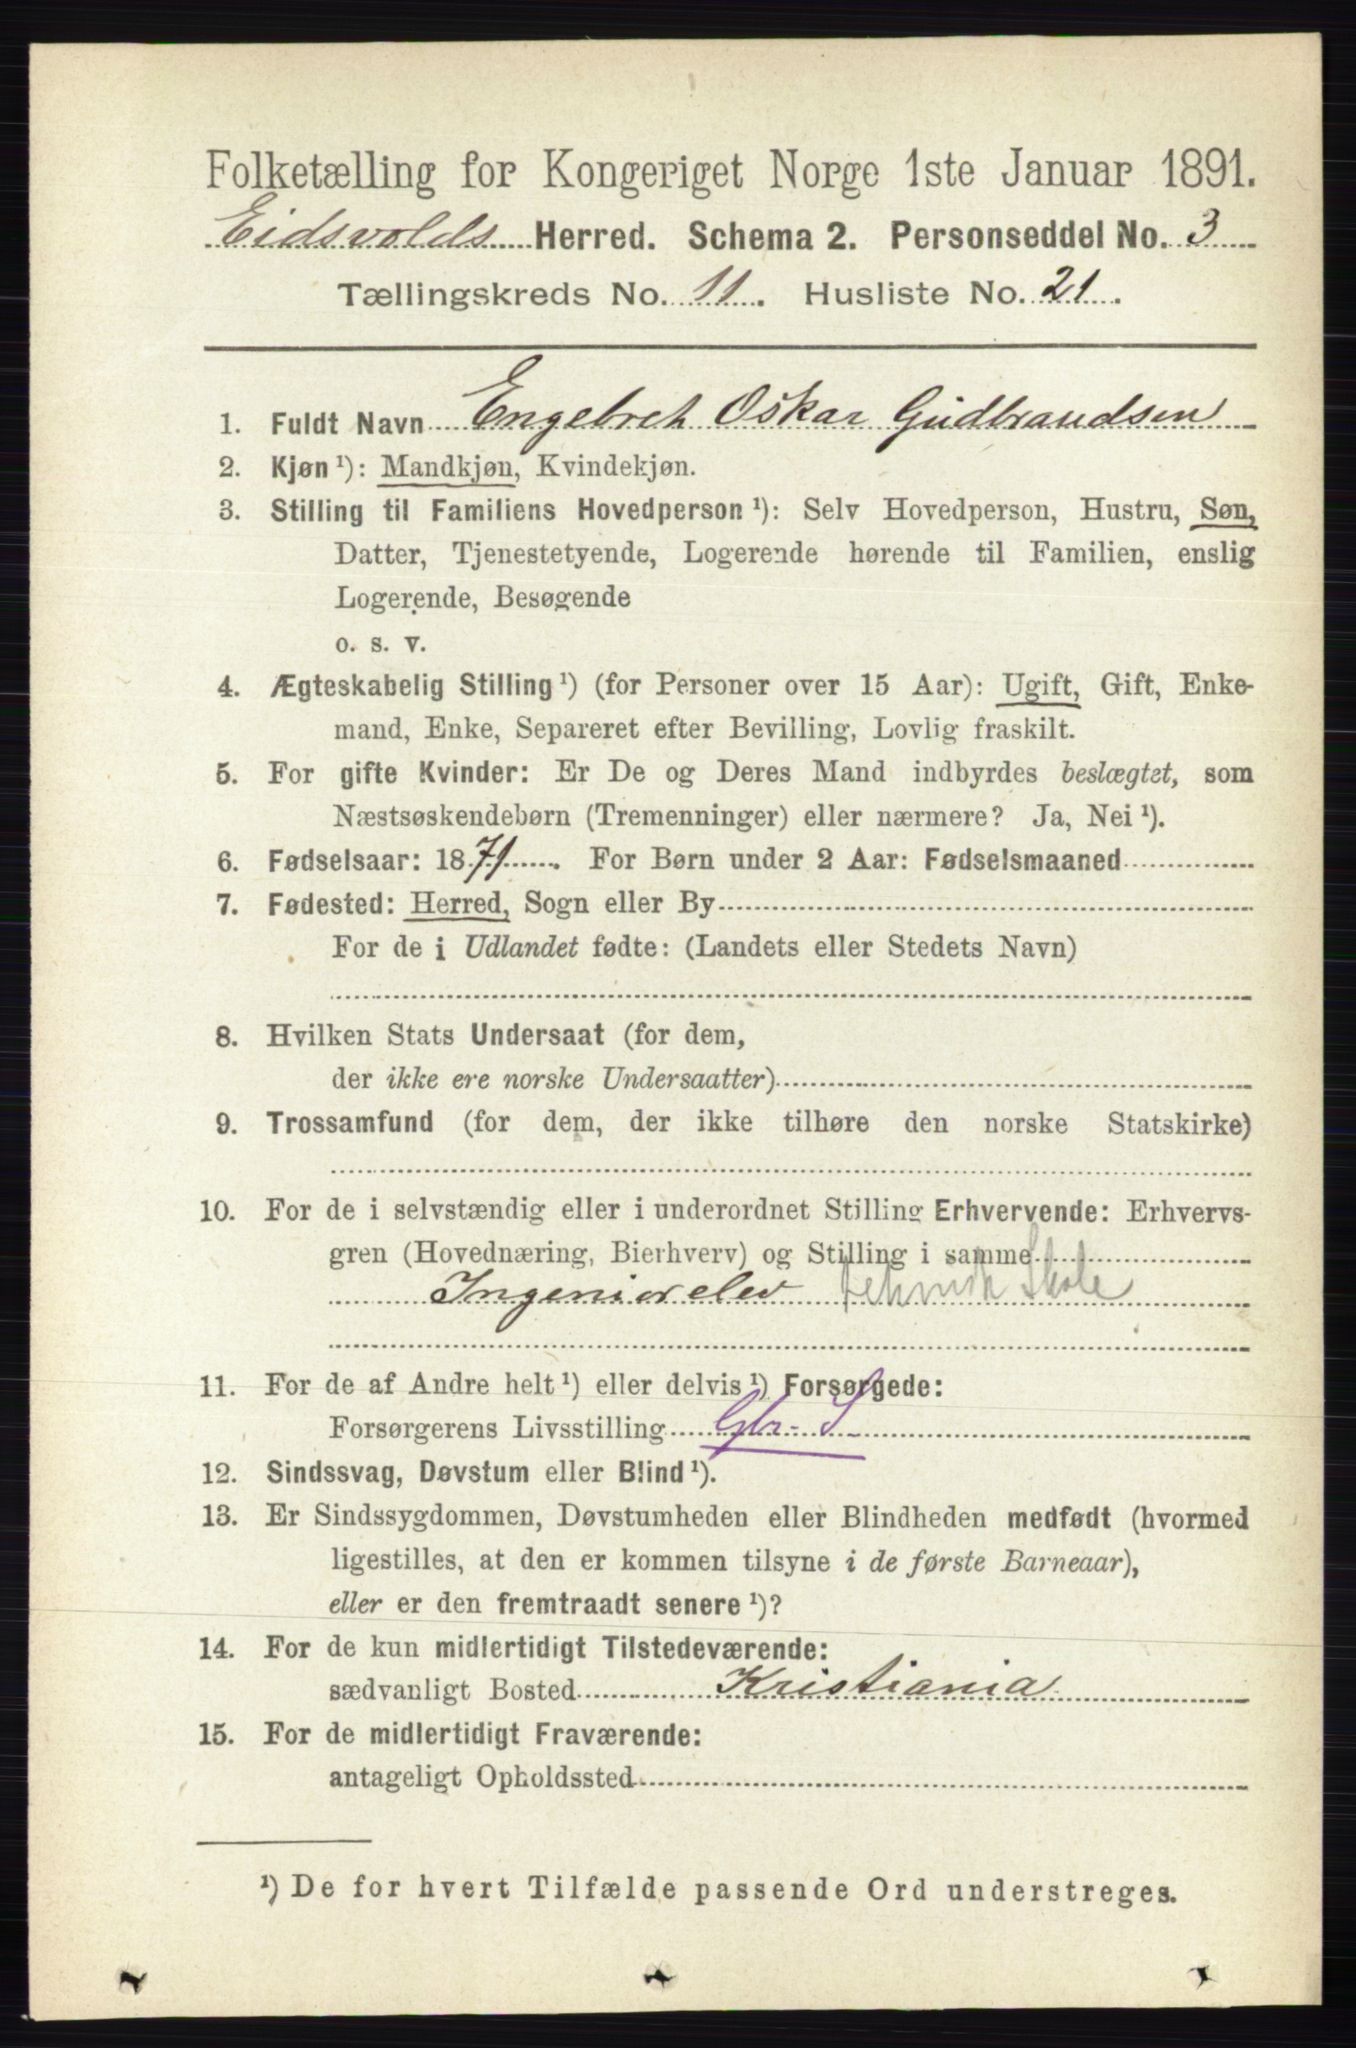 Folketælling for Kongeriget Norge 1ste Januar 1891.
Eidsvolds Herred. Schema 2. Personseddel No. 3
Tællingskreds No. 11. Husliste No. 21.
1. Fuldt Navn Engebret Oskar Gudbrandsen
2. Kjøn ¹): Mandkjøn, Kvindekjøn.
3. Stilling til Familiens Hovedperson ¹): Selv Hovedperson, Hustru, Søn,
Datter, Tjenestetyende, Logerende hørende til Familien, enslig
Logerende, Besøgende
o. s. v.
4. Ægteskabelig Stilling ¹) (for Personer over 15 Aar): Ugift, Gift, Enke-
mand, Enke, Separeret efter Bevilling, Lovlig fraskilt.
5. For gifte Kvinder: Er De og Deres Mand indbyrdes beslægtet, som
Næstsøskendebørn (Tremenninger) eller nærmere? Ja, Nei ¹).
6. Fødselsaar: 1871. For Børn under 2 Aar: Fødselsmaaned
7. Fødested: Herred, Sogn eller By
For de i Udlandet fødte: (Landets eller Stedets Navn)
8. Hvilken Stats Undersaat (for dem,
der ikke ere norske Undersaatter)
9. Trossamfund (for dem, der ikke tilhøre den norske Statskirke)
10. For de i selvstændig eller i underordnet Stilling Erhvervende: Erhvervs-
gren (Hovednæring, Bierhverv) og Stilling i samme
Ingeniørelev teknisk Skole
11. For de af Andre helt ¹) eller delvis ¹) Forsørgede:
Forsørgerens Livsstilling Gbr-S
12. Sindssvag, Døvstum eller Blind ¹).
13. Er Sindssygdommen, Døvstumheden eller Blindheden medfødt (hvormed
ligestilles, at den er kommen tilsyne i de første Barneaar),
eller er den fremtraadt senere ¹)?
14. For de kun midlertidigt Tilstedeværende:
sædvanligt Bosted Kristiania
15. For de midlertidigt Fraværende:
antageligt Opholdssted
¹) De for hvert Tilfælde passende Ord understreges.